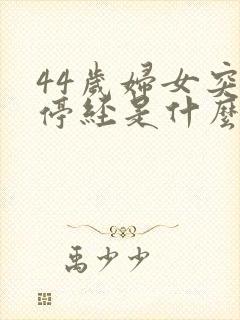 44歲婦女突
停經是什麼
禹少少